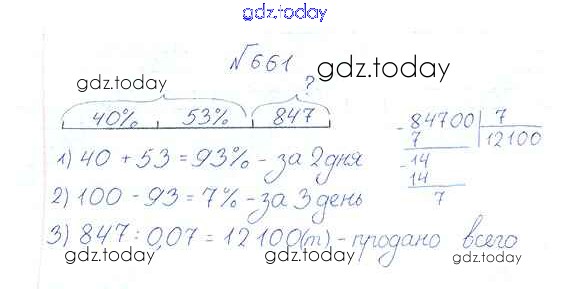 gdz.today
№661
gdz.today
gdz.today
?
40% 53% 847
84700 7
7 12100
1) 40 + 53 = 93% - за 2 дня
-14
14
2) 100 - 93 = 7% - за 3 день
7
3) 847 : 0,07 = 12100(т) - продано всего
gdz.today
gdz.today